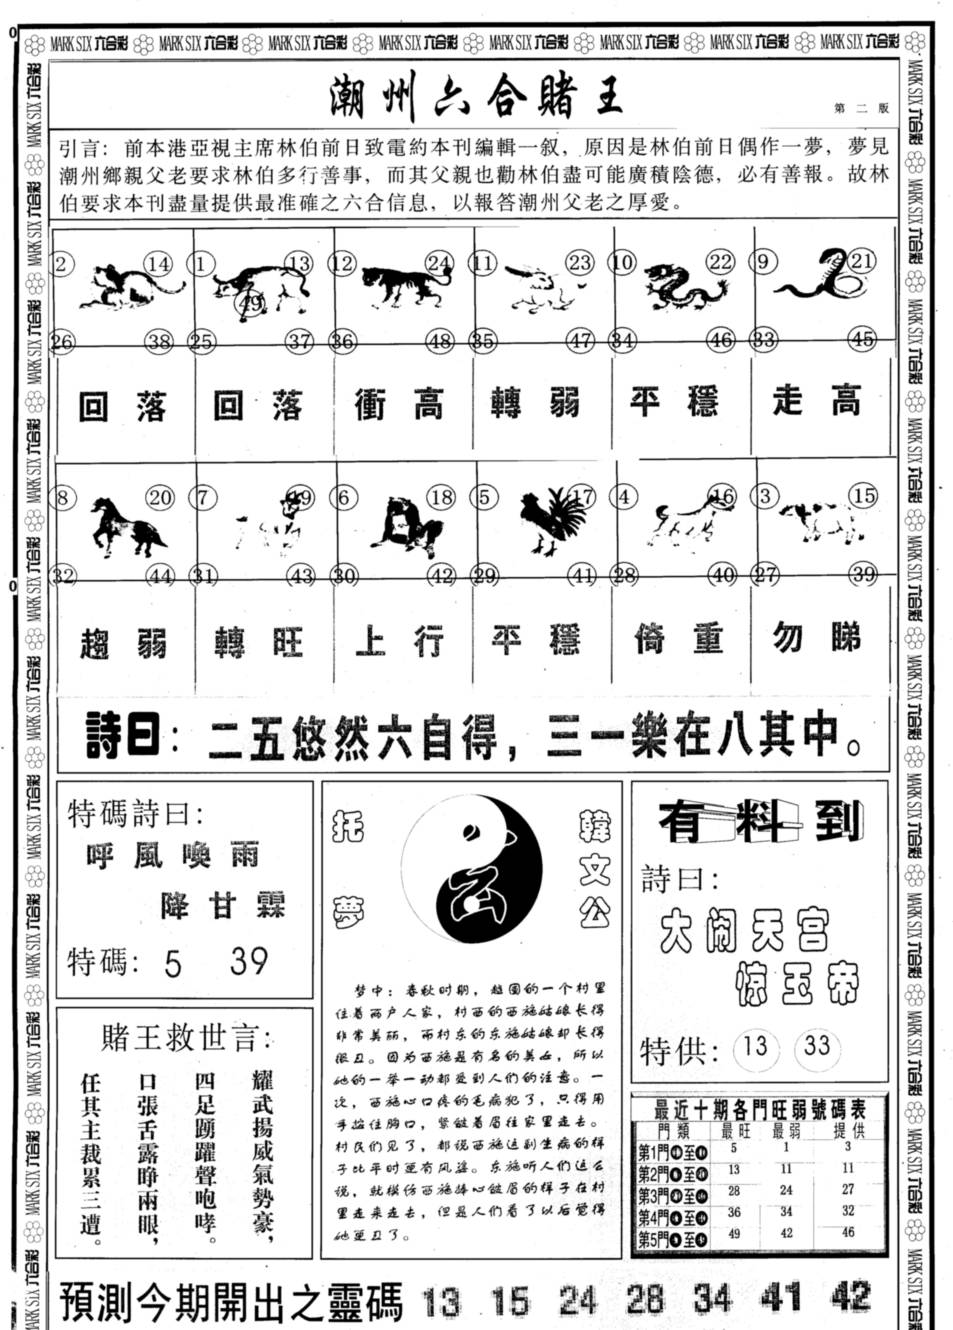 MARK SIX 六合彩 MARK SIX 六合彩 MARK SIX 六合彩 MARK SIX 六合彩 MARK SIX 六合彩 MARK SIX 六合彩 MARK SIX 六合彩 MARK SIX 六合彩
潮州六合賭王
第二版
引言：前本港亞視主席林伯前日致電約本刊編輯一叙，原因是林伯前日偶作一夢，夢見
潮州鄉親父老要求林伯多行善事，而其父親也勸林伯盡可能廣積陰德，必有善報。故林
伯要求本刊盡量提供最准確之六合信息，以報答潮州父老之厚愛。
2 14 1 13 12 24 11 23 10 22 9 21
49
26 38 25 37 36 48 35 47 34 46 33 45
回落 回落 衝高 轉弱 平穩 走高
8 20 7 19 6 18 5 17 4 16 3 15
32 44 31 43 30 42 29 41 28 40 27 39
趨弱 轉旺 上行 平穩 倚重 勿睇
詩曰：二五悠然六自得，三一樂在八其中。
特碼詩曰：
呼風喚雨
降甘霖
特碼：5 39
賭王救世言：
耀武揚威氣勢豪，
四足踴躍聲咆哮。
口張舌露睁兩眼，
任其主裁累三遭。
韓文公
托夢
梦中：春秋时期，越国的一个村里
住着两户人家，村西的西施姑娘长得
非常美丽，而村东的东施姑娘却长得
很丑。因为西施是有名的美女，所以
她的一举一动都受到人们的注意。一
次，西施心口疼的毛病犯了，只得用
手捂住胸口，紧皱着眉往家里走去。
村民们见了，都说西施这副生病的样
子比平时更有风姿。东施听人们这么
说，就模仿西施捧心皱眉的样子在村
里走来走去，但是人们看了以后觉得
她更丑了。
有料到
詩曰：
大闹天宫
惊玉帝
特供：13 33
最近十期各門旺弱號碼表
門類 最旺 最弱 提供
第1門 至 5 1 3
第2門 至 13 11 11
第3門 至 28 24 27
第4門 至 36 34 32
第5門 至 49 42 46
預測今期開出之靈碼 13 15 24 28 34 41 42